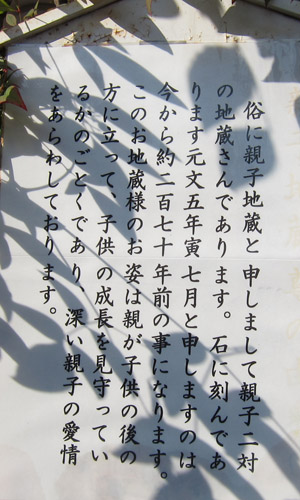 俗に親子地蔵と申しまして親子二対
の地蔵さんであります。石に刻んであ
ります元文五年寅七月と申しますのは
今から約二百七十年前の事になります。
このお地蔵様のお姿は親が子供の後の
方に立って、子供の成長を見守ってい
るかのごとくであり、深い親子の愛情
をあらわしております。